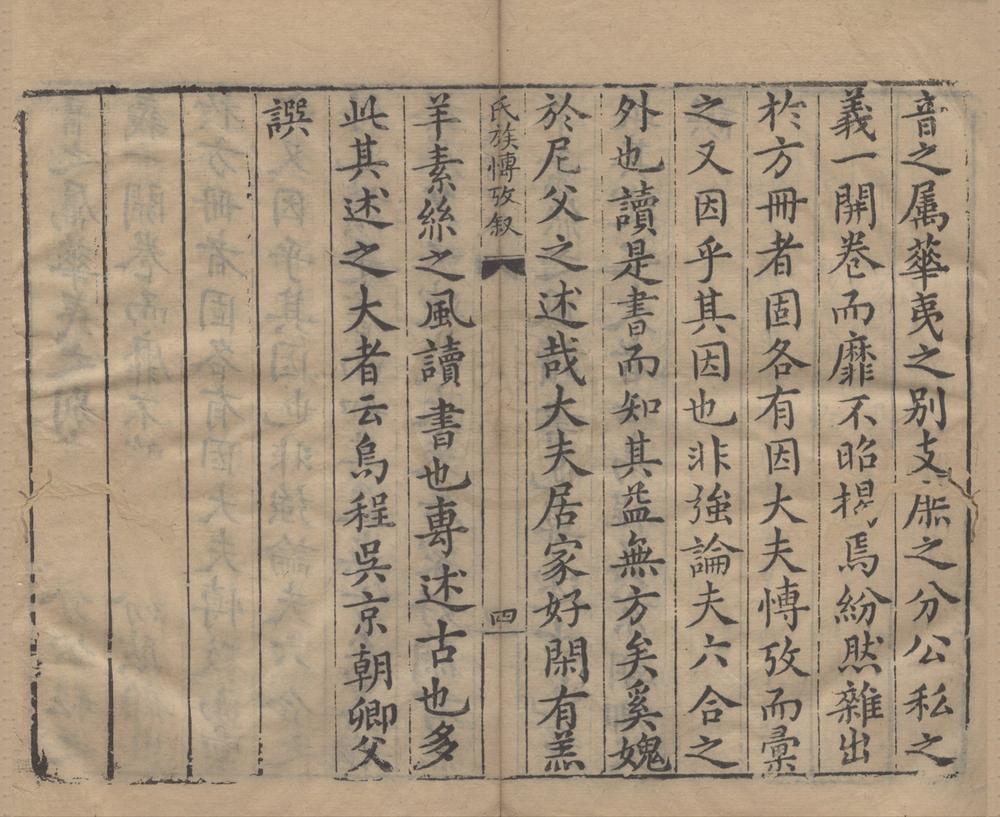 音之属華夷之别支庶之分公私之
義一開卷而靡不昭揭焉紛然雜出
於方冊者固各有因大夫慱攷而彙
之又因乎其因也非強論夫六合之
外也讀是書而知其益無方矣奚媿
於尼父之述哉大夫居家好閑有羔
氏族慱攷叙
四
羊素絲之風讀書也專述古也多
此其述之大者云烏程吳京朝卿父
譔